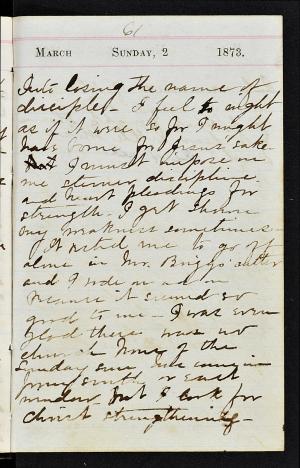 61
MARCH SUNDAY, 2 1873.
Into losing the name of
disciple – I feel to night
as if it were so for I might
have borne for Jesus' sake.
I must impose on
me sterner discipline
and heart pleadings for
strength. I get
my weakness sometimes –
It rested me to go off
alone in Mr. Briggs' cutter
and I rode on and on
because it seemed so
good to me – I was even
glad there was no
church. None of the
Sunday came in
south or east
window. But I look for
Christ strengthening –